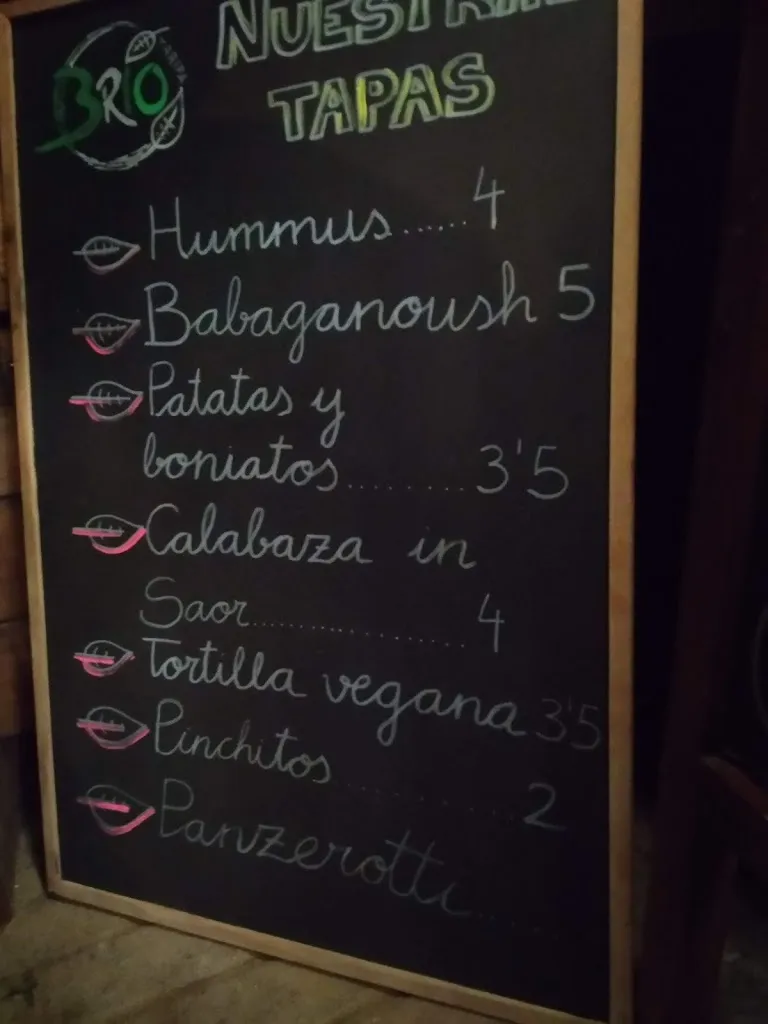 BRIO TARIFA
NUESTRAS
TAPAS
Hummus......4
Babaganoush 5
Patatas y
boniatos........3'5
Calabaza in
Saor.................4
Tortilla vegana 3'5
Pinchitos...........2
Panzerotti......